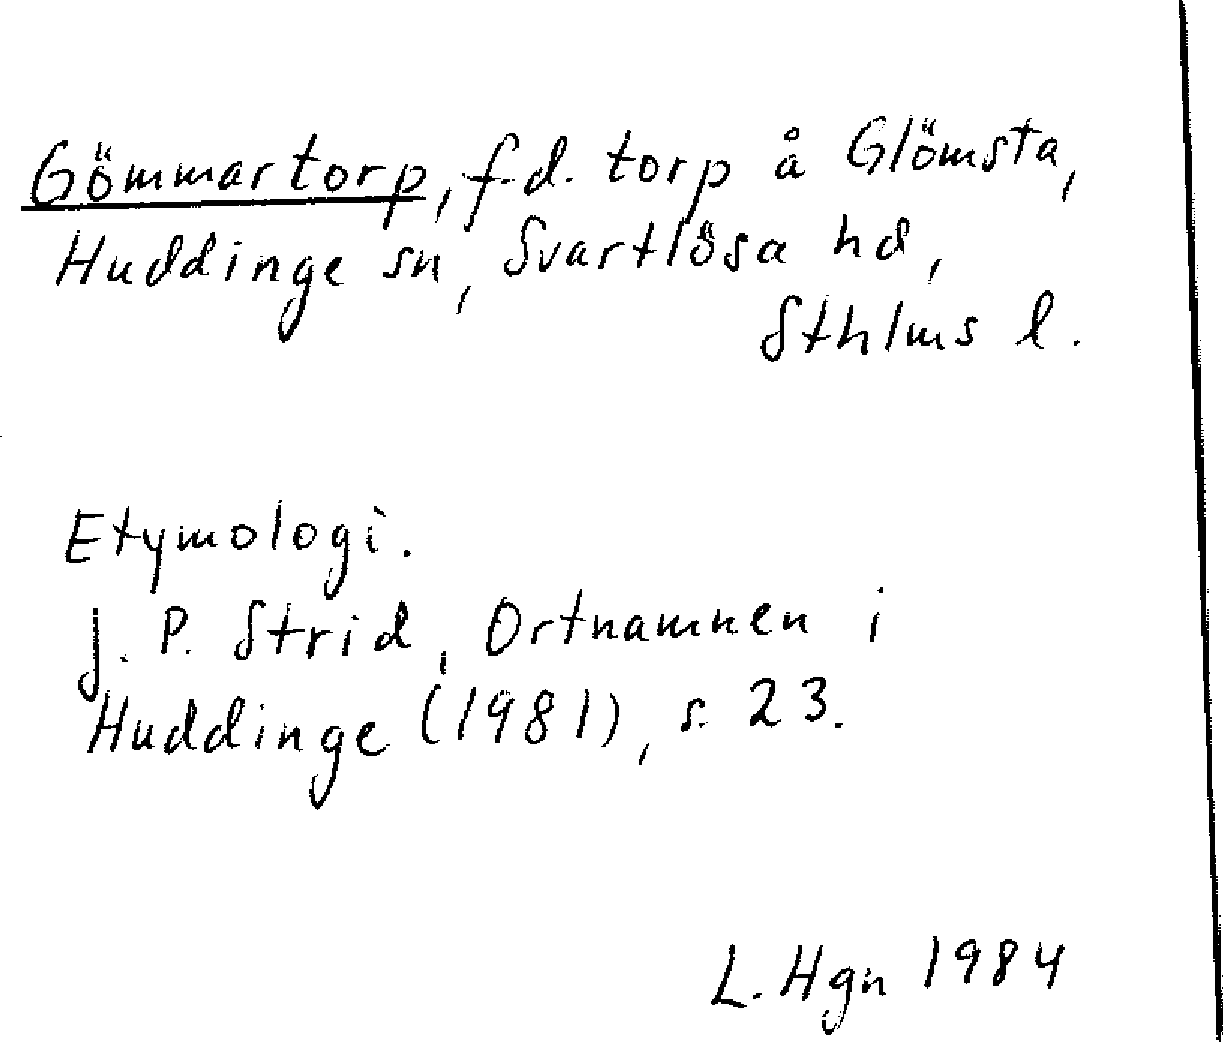 Gömmartorp, f.d. torp å Glömsta,
Huddinge sn, Svartlösa hd,
Sthlms l.
Etymologi.
J. P. Strid, Ortnamnen i
Huddinge (1981), s. 23.
L. Hgn 1984